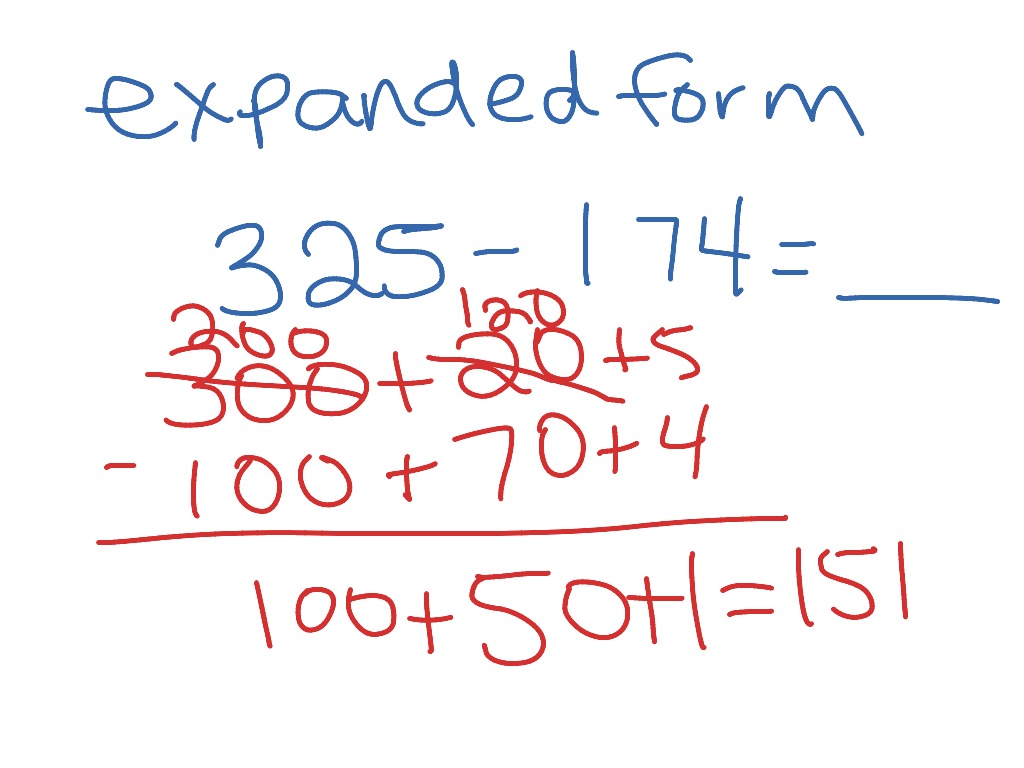 expanded form
325 - 174 = ____
200 120
300 + 20 + 5
- 100 + 70 + 4
100 + 50 + 1 = 151